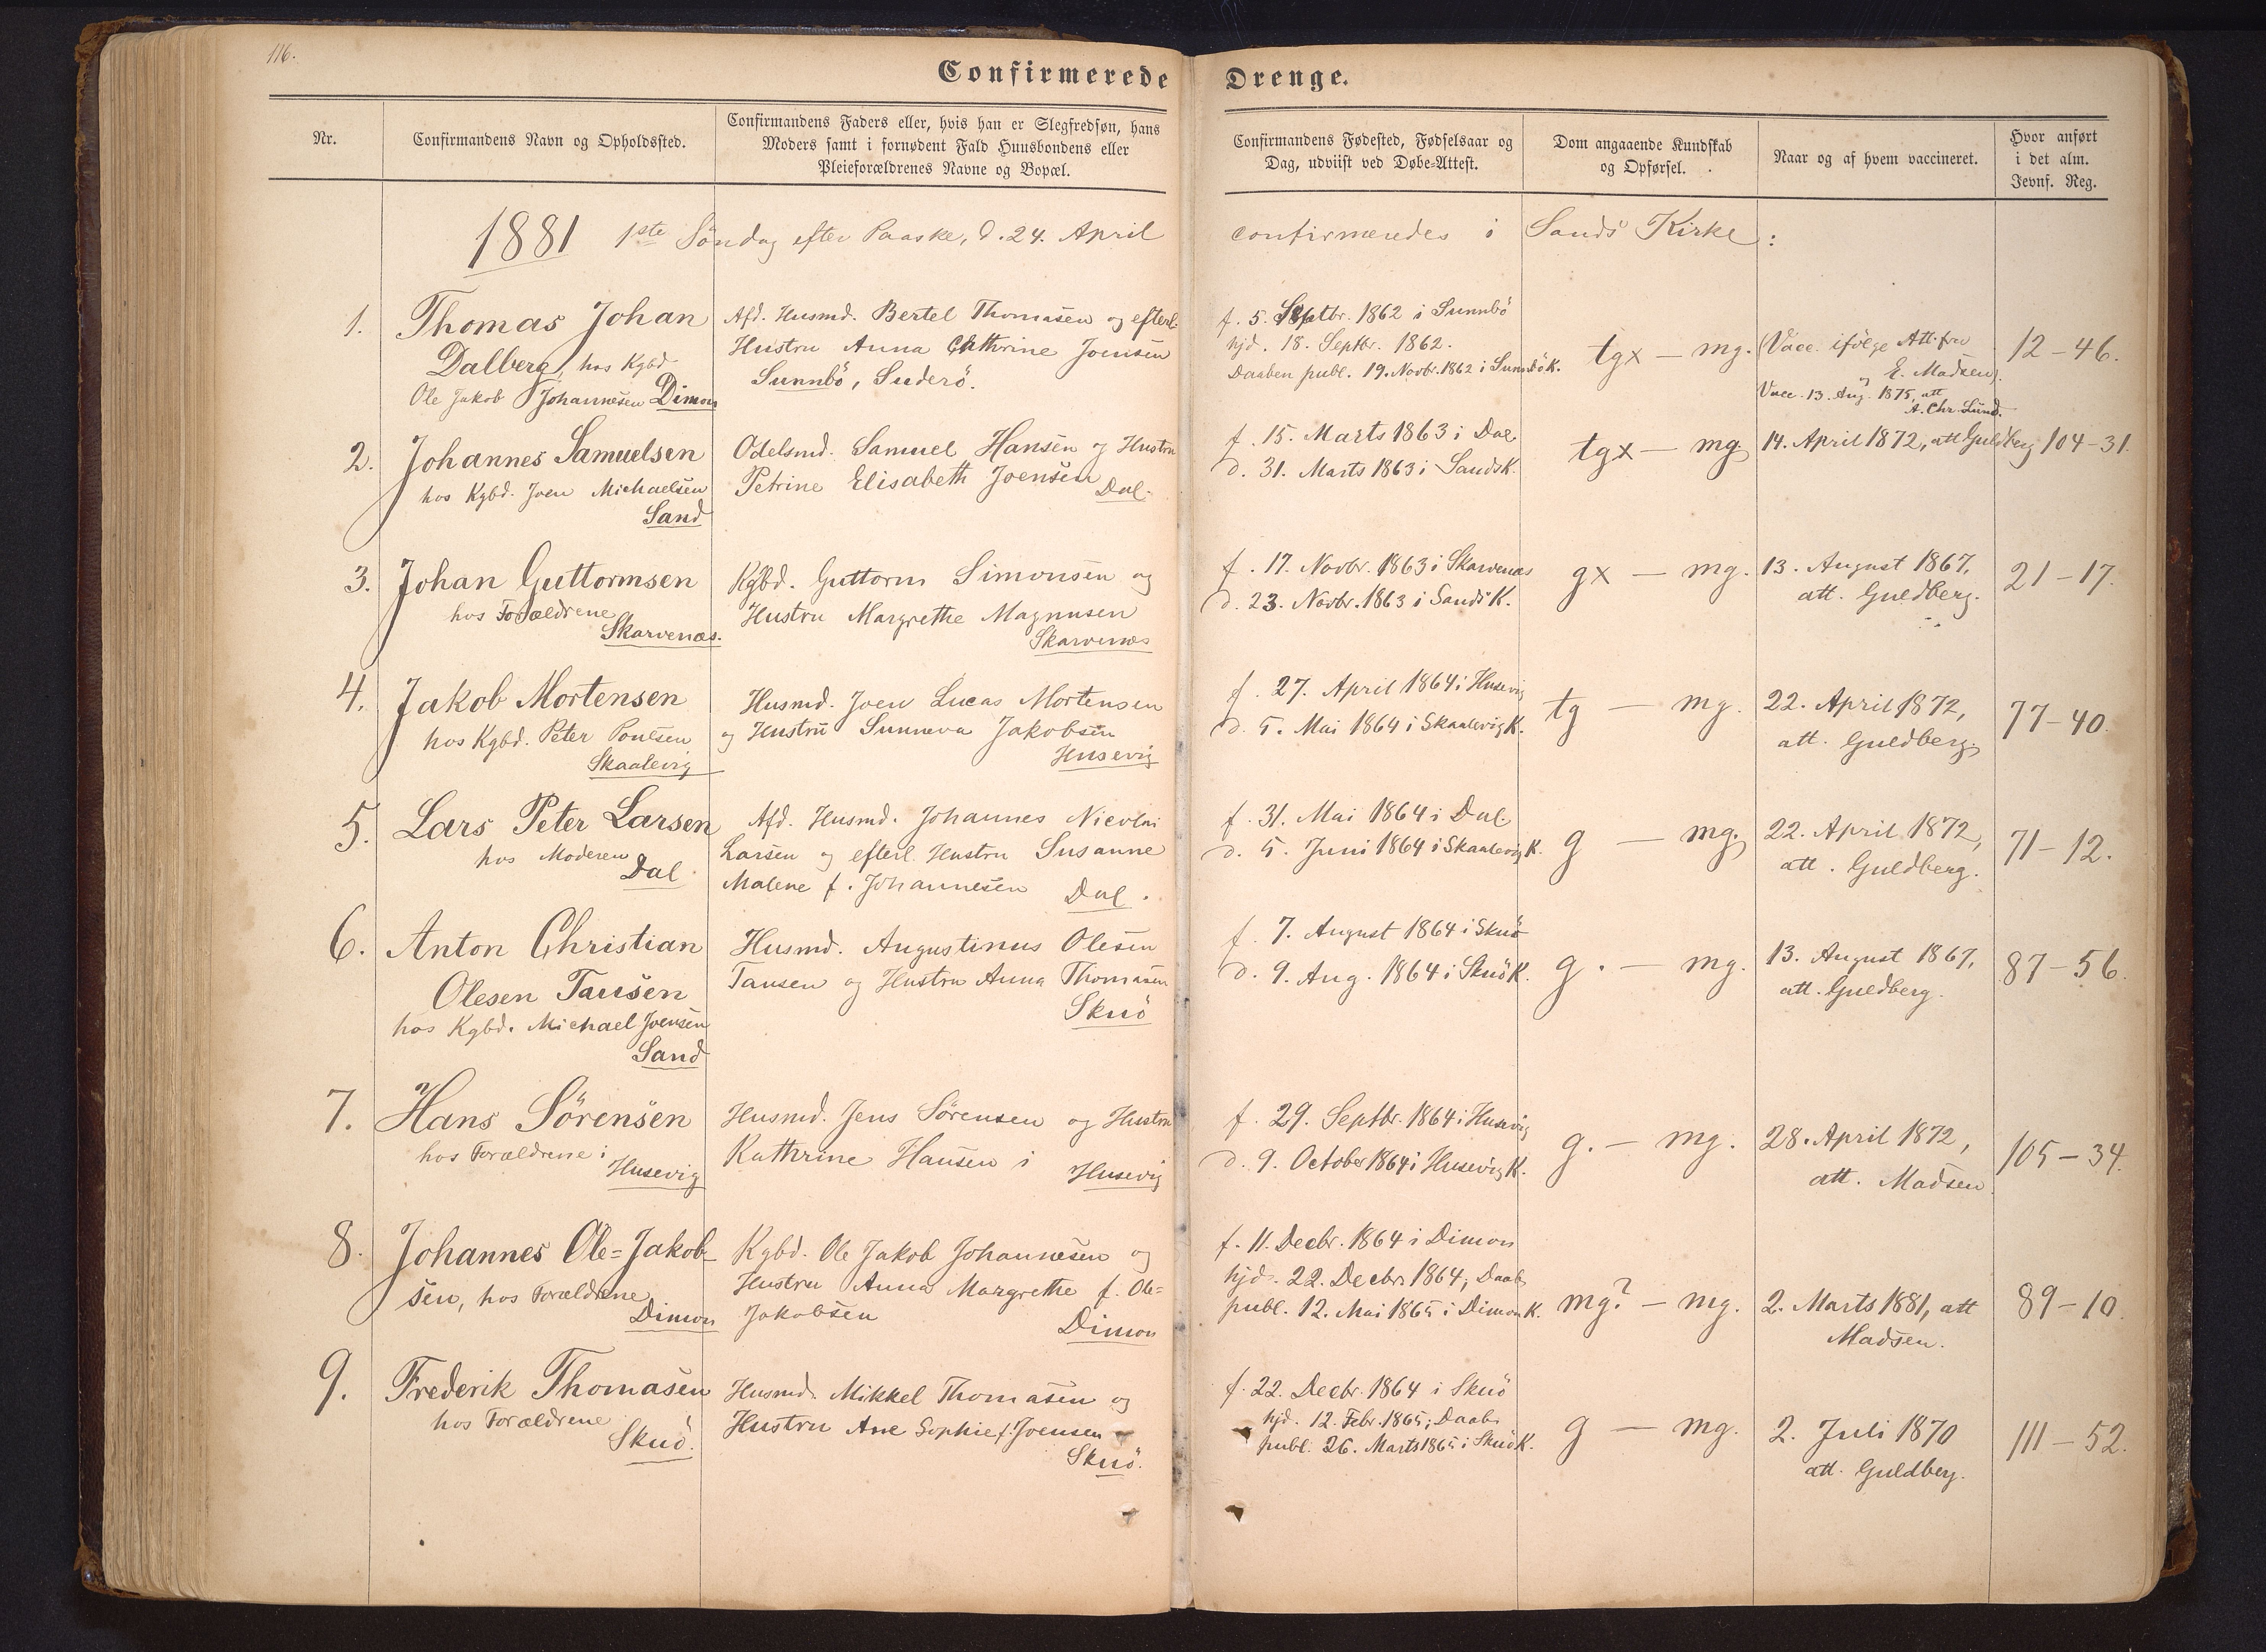 116.
Confirmerede Drenge.
Nr.
Confirmandens Navn og Opholdssted.
Confirmandens Faders eller, hvis han er Slegfredsøn, hans
Moders samt i fornødent Fald Huusbondens eller
Pleieforældrenes Navne og Bopæl.
Confirmandens Fødested, Fødselsaar og
Dag, udviist ved Døbe-Attest.
Dom angaaende Kundskab
og Opførsel.
Naar og af hvem vaccineret.
Hvor anført
i det alm.
Jevnf. Reg.
1881 1ste Söndag efter Paaske, d. 24. April confirmeredes i Sands Kirke:
1.
Thomas Johan
Dalberg, hos Kgbd
Ole Jakob Johannesen Dimon
Afd. Husmd. Bertel Thomasen og efterl.
Hustru Anna Cathrine Joensen
Sunnbö, Suderö.
f. 5. Septbr. 1862 i Sunnbö
hjd. 18. Septbr. 1862.
Daaben publ. 19. Novbr. 1862 i Sunnbö K.
tgx — mg.
(Vacc. ifölge Att. fra
E. Madsen).
og
Vacc. 13. Aug. 1875, att
A. Chr. Lund.
12-46.
2.
Johannes Samuelsen
hos Kgbd. Joen Michaelsen
Sand
Odelsmd. Samuel Hansen og Hustru
Petrine Elisabeth Joensen
Dal.
f. 15. Marts 1863 i Dal
d. 31. Marts 1863 i Sands K.
tgx — mg
14. April 1872, att Guldberg
104-31.
3.
Johan Guttormsen
hos Forældrene
Skarvenæs.
Kgbd. Guttorm Simonsen og
Hustru Margrethe Magnusen
Skarvenæs
f. 17. Novbr. 1863 i Skarvenæs
d. 23. Novbr. 1863 i Sands K.
gx — mg.
13. August 1867,
att. Guldberg.
21-17.
4.
Jakob Mortensen
hos Kgbd. Peter Poulsen
Skaalevig
Husmd. Joen Lucas Mortensen
og Hustru Sunneva Jakobsen
Husevig
f. 27. April 1864 i Husevig
d. 5. Mai 1864 i Skaalevig K.
tg — mg.
22. April 1872,
att. Guldberg.
77-40.
5.
Lars Peter Larsen
hos Moderen
Dal
Afd. Husmd. Johannes Nicolai
Larsen og efterl. Hustru Susanne
Malene f. Johannesen
Dal.
f. 31. Mai 1864 i Dal.
d. 5. Juni 1864 i Skaalevig K.
g — mg.
22. April 1872,
att. Guldberg.
71-12.
6.
Anton Christian
Olesen Tausen
hos Kgbd. Michael Joensen
Sand
Husmd. Augustinus Olesen
Tausen og Hustru Anna Thomasen
Skuö
f. 7. August 1864 i Skuö
d. 9. Aug. 1864 i Skuö K.
g. — mg.
13. August 1867,
att. Guldberg.
87-56.
7.
Hans Sörensen
hos Forældrene i
Husevig
Husmd. Jens Sörensen og Hustru
Kathrine Hansen i
Husevig
f. 29. Septbr. 1864 i Husevig
d. 9. October 1864 i Husevig K.
g. — mg.
28. April 1872,
att. Madsen.
105-34.
8.
Johannes Ole=Jakob-
sen, hos Forældrene
Dimon
Kgbd. Ole Jakob Johannesen og
Hustru Anna Margrethe f. Ole=
Jakobsen
Dimon
f. 11. Decbr. 1864 i Dimon
hjd. 22. Decbr. 1864; Daab
publ. 12. Mai 1865 i Dimon K.
mg? — mg.
2. Marts 1881, att
Madsen.
89-10.
9.
Frederik Thomasen
hos Forældrene
Skuö.
Husmd. Mikkel Thomasen og
Hustru Ane Sophie f. Joensen
Skuö.
f. 22. Decbr. 1864 i Skuö
hjd. 12. Febr. 1865; Daab
publ. 26. Marts 1865 i Skuö K.
g — mg.
2. Juli 1870
att. Guldberg.
111-52.